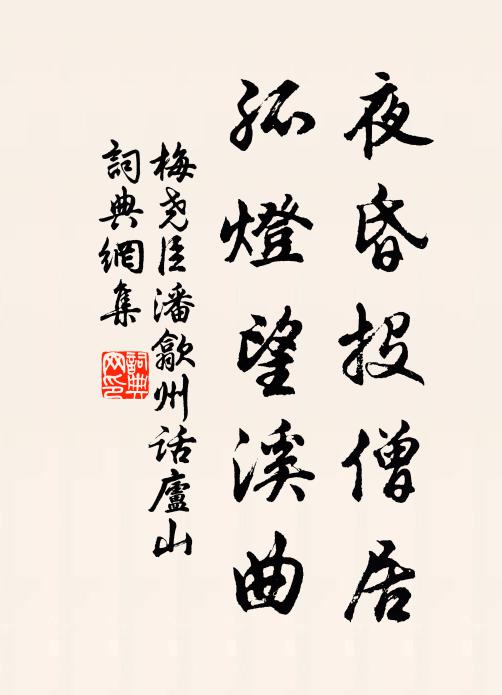 夜昏投僧居
孤燈望溪曲
梅尧臣潘歙州话廬山
詞典網集
詞典網印